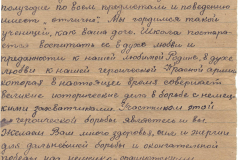 полугодие по всем предметам и поведению
имеет „отлично“. Мы гордимся такой
ученицей, как ваша дочь. Школа постара-
ется воспитать ее в духе любви и
преданности к нашей любимой Родине, в духе
любви к нашей героической Красной армии,
которая в настоящее время совершает
великие исторические дела в борьбе с немец-
кими захватчиками. Участником этой
героической борьбы являетесь и вы.
Желаем Вам много здоровья, сил и энергии
для дальнейшей борьбы и окончательной
победы над немецко-фашистскими